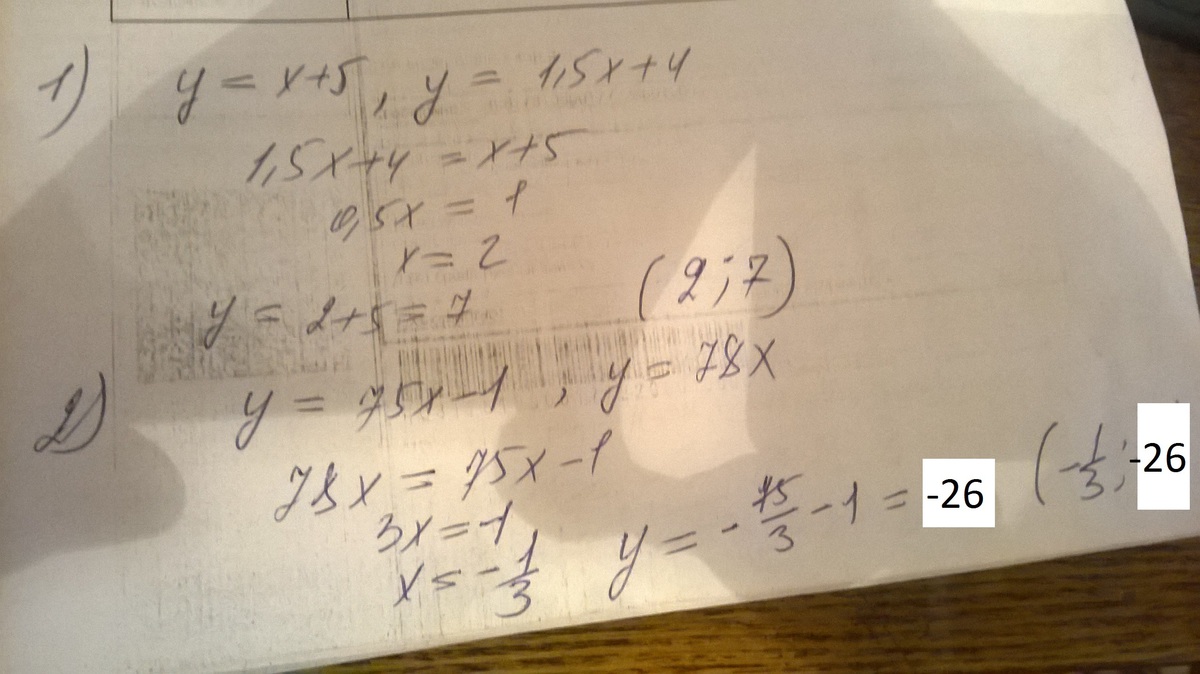 1) y = x+5, y = 1,5x+4
1,5x+4 = x+5
0,5x = 1
x = 2
y = 2+5 = 7 (2;7)
2) y = 75x-1, y = 78x
78x = 75x-1
3x = -1, y = -75/3 -1 = -26 (-1/3; -26
x = -1/3